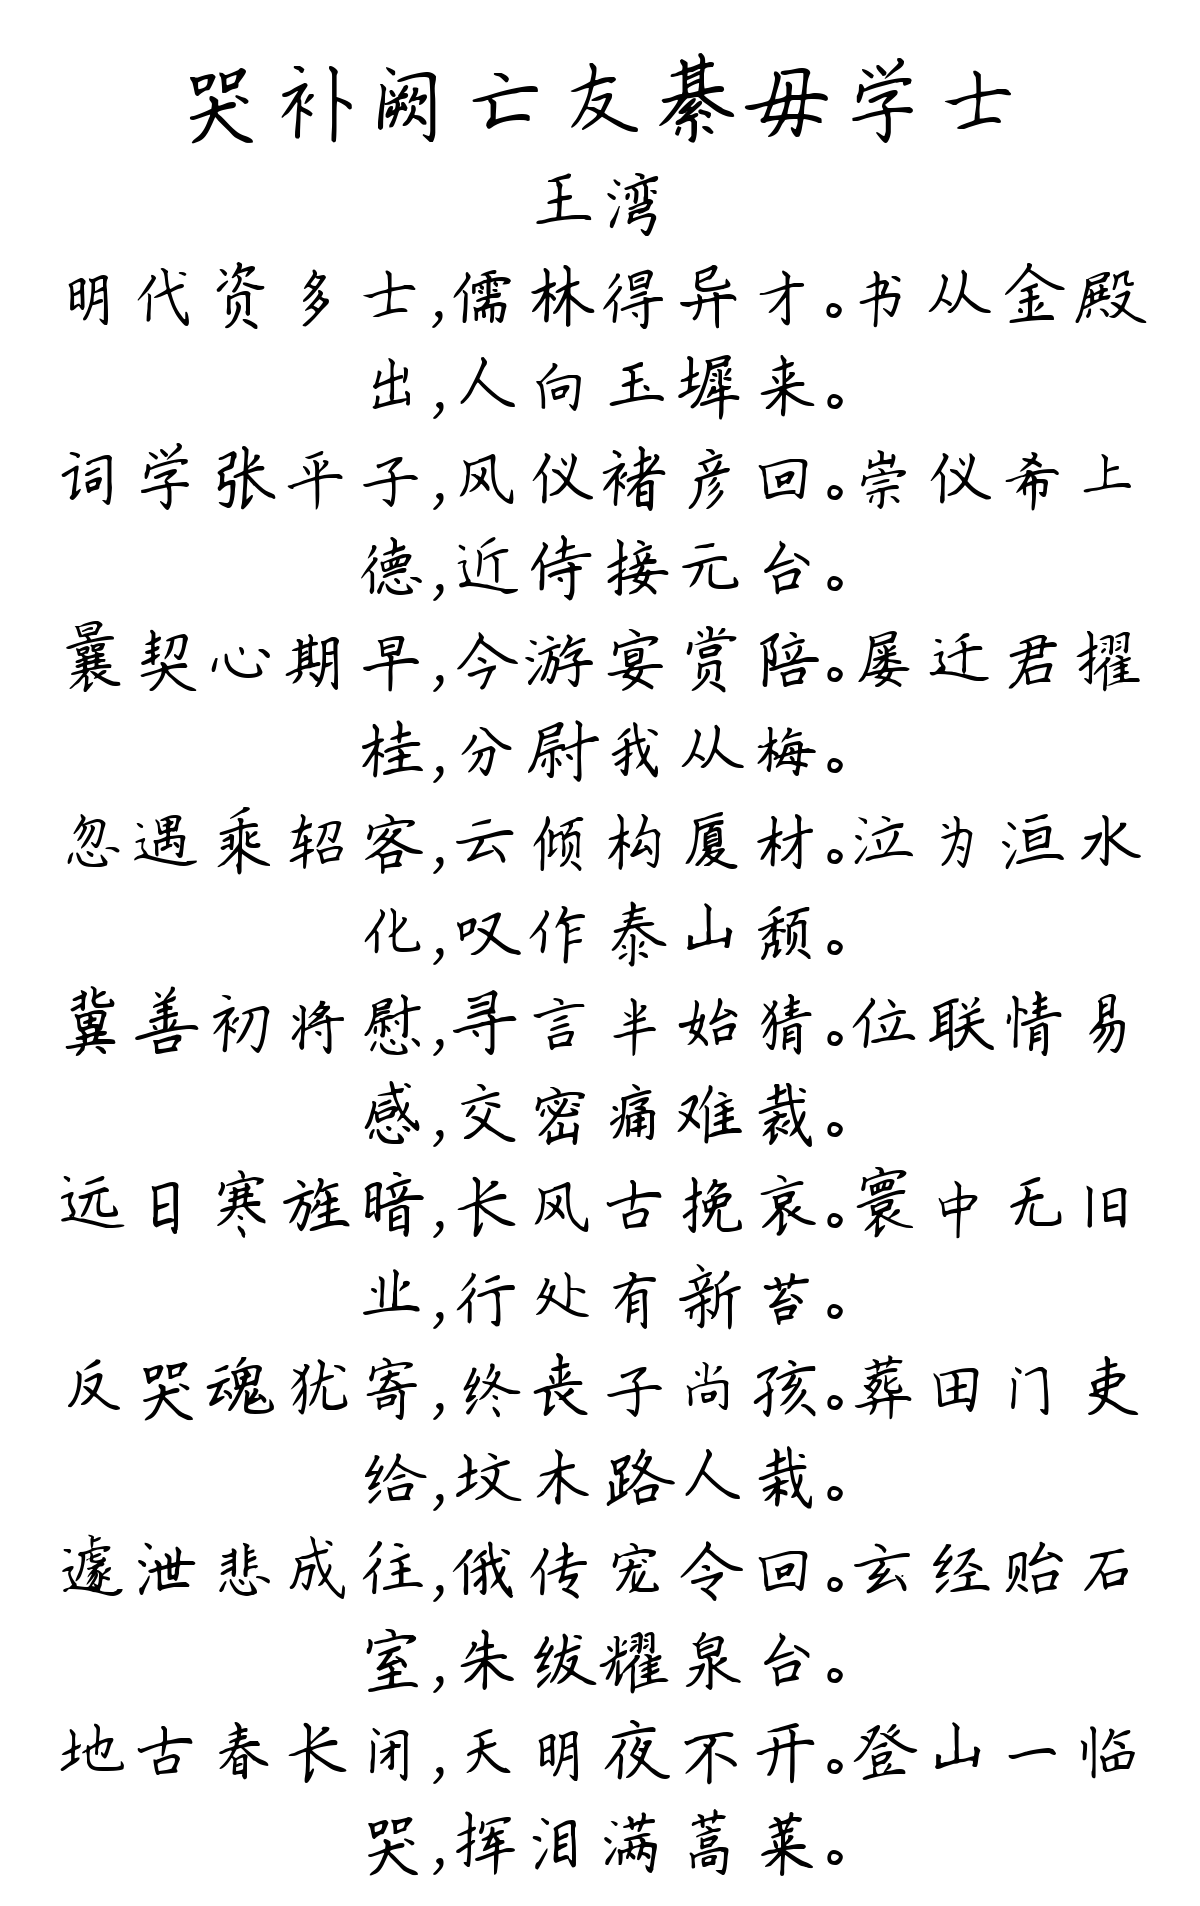 哭补阙亡友綦毋学士
王湾
明代资多士,儒林得异才。书从金殿
出,人向玉墀来。
词学张平子,风仪褚彦回。崇仪希上
德,近侍接元台。
曩契心期早,今游宴赏陪。屡迁君擢
桂,分尉我从梅。
忽遇乘轺客,云倾构厦材。泣为洹水
化,叹作泰山颓。
冀善初将慰,寻言半始猜。位联情易
感,交密痛难裁。
远日寒旌暗,长风古挽哀。寰中无旧
业,行处有新苔。
反哭魂犹寄,终丧子尚孩。葬田门吏
给,坟木路人栽。
遽泄悲成往,俄传宠令回。玄经贻石
室,朱绂耀泉台。
地古春长闭,天明夜不开。登山一临
哭,挥泪满蒿莱。